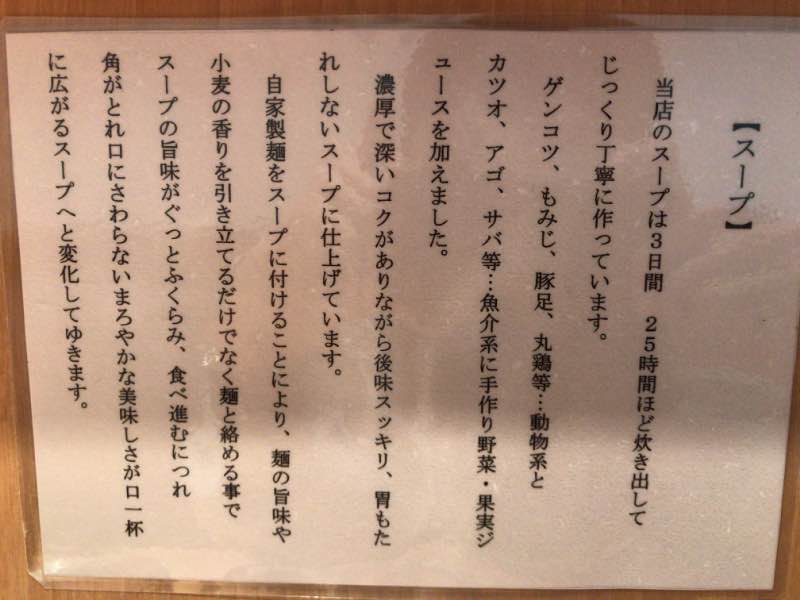 【スープ】
当店のスープは3日間　25時間ほど炊き出して
じっくり丁寧に作っています。
ゲンコツ、もみじ、豚足、丸鶏等…動物系と
カツオ、アゴ、サバ等…魚介系に手作り野菜・果実ジ
ュースを加えました。
濃厚で深いコクがありながら後味スッキリ、胃もた
れしないスープに仕上げています。
自家製麺をスープに付けることにより、麺の旨味や
小麦の香りを引き立てるだけでなく麺と絡める事で
スープの旨味がぐっとふくらみ、食べ進むにつれ
角がとれ口にさわらないまろやかな美味しさが口一杯
に広がるスープへと変化してゆきます。